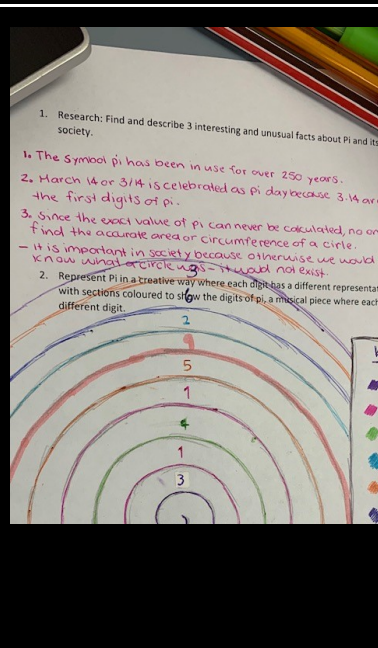 1. Research: Find and describe 3 interesting and unusual facts about Pi and its
society.
1. The symbol pi has been in use for over 250 years.
2. March 14 or 3/14 is celebrated as pi day because 3.14 are
the first digits of pi.
3. Since the exact value of pi can never be calculated, no on
find the accurate area or circumference of a cirle.
- it is important in society because otherwise we would
know what a circle was - it would not exist.
2. Represent Pi in a creative way where each digit has a different representat
with sections coloured to show the digits of pi, a musical piece where each
different digit.
3
6
2
9
5
1
4
1
3